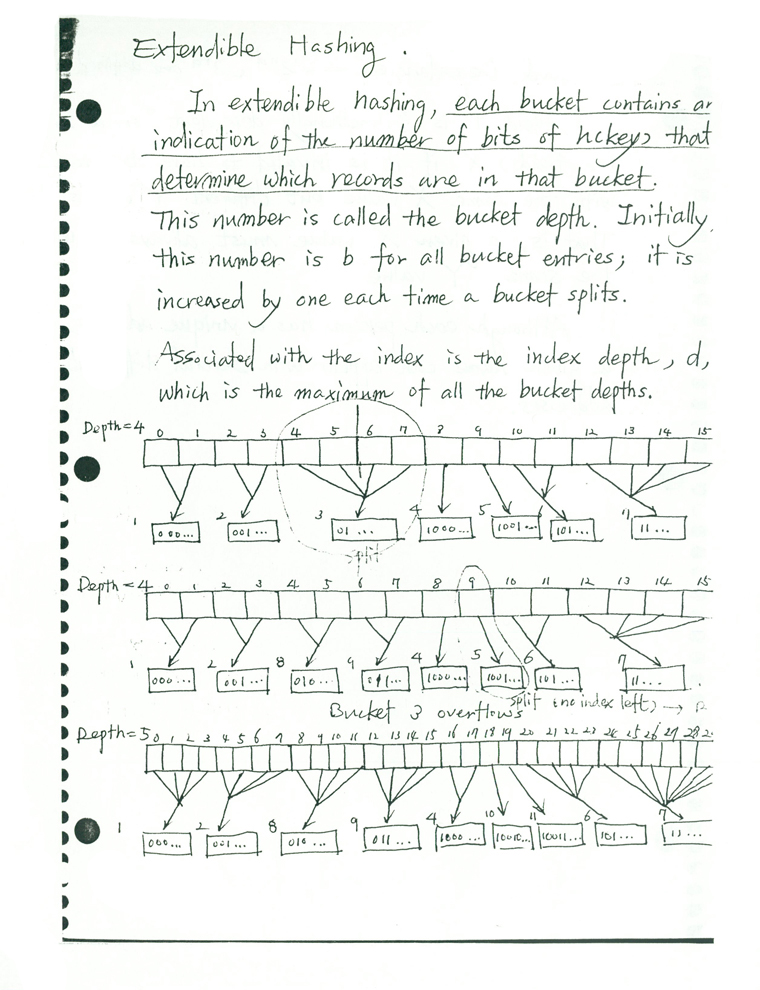 Extendible Hashing.
In extendible hashing, each bucket contains an
indication of the number of bits of h(key) that
determine which records are in that bucket.
This number is called the bucket depth. Initially,
this number is b for all bucket entries; it is
increased by one each time a bucket splits.
Associated with the index is the index depth, d,
which is the maximum of all the bucket depths.
Depth=4 0 1 2 3 4 5 6 7 8 9 10 11 12 13 14 15
1 2 3 4 5
000... 001... 01... 1000... 1001... 101... 11...
split
Depth=4 0 1 2 3 4 5 6 7 8 9 10 11 12 13 14 15
1 2 8 9 4 5 6 7
000... 001... 010... 011... 1000... 1001... 101... 11...
split (no index left) →
Bucket 3 overflows
Depth=5 0 1 2 3 4 5 6 7 8 9 10 11 12 13 14 15 16 17 18 19 20 21 22 23 24 25 26 27 28
1 2 8 9 4 10 11 6 7
000... 001... 010... 011... 1000... 10010... 10011... 101... 11...